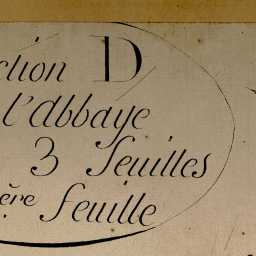 ction D
l'abbaye
3 feuilles
ère feuille